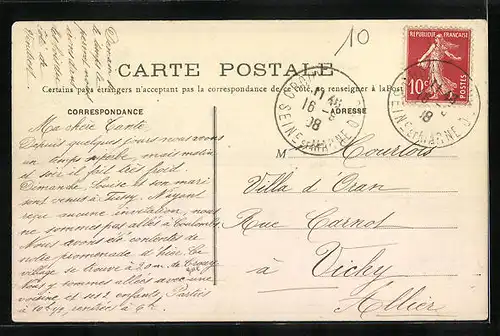 10
REPUBLIQUE FRANÇAISE
10c
POSTES
CARTE POSTALE
Certains pays étrangers n'acceptant pas la correspondance de ce côté, se renseigner à la Poste
CORRESPONDANCE
ADRESSE
16 - 8
08
SEINE ET MARNE
Ma chère Tante,
Depuis quelques jours nous avons
un temps superbe, mais matin
et soir il fait très froid.
Dimanche, Louise et son mari
sont venus à Torcy. N'ayant
reçu aucune invitation, nous
ne sommes pas allés à
Nous avons été contents de
notre promenade d'hier. Ce
village se trouve à 20 m. de
nous y sommes allées avec une
voisine et ses 2 enfants. Parties
à 10h 1/2, rentrée à 9h.
M Courtois
Villa d'Oran
Rue Carnot
à Vichy
Allier